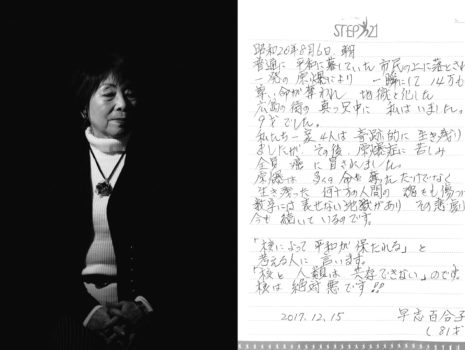 STEP 21
昭和20年8月6日、朝
普通に 平和に暮していた 市民の上に落とされ
一発の原爆により 一瞬にして 14万も
尊い命が奪われ 地獄と化した
広島の街の 真っ只中に 私はいました。
9才でした。
私たち一家 4人は 奇跡的に 生き残り
ましたが その後 原爆症に 苦しみ
全員 癌に 冒されました。
原爆は 多くの命を奪っただけでなく
生き残った 何十万の人間の 魂をも傷つ
数字には表せない地獄があり その悲劇
今も 続いているのです。
「核によって平和が 保たれる」と
考える人に 言います。
「核と 人類は 共存できない」のです
核は 絶対悪です!!
2017.12.15 早志百合子
(81才